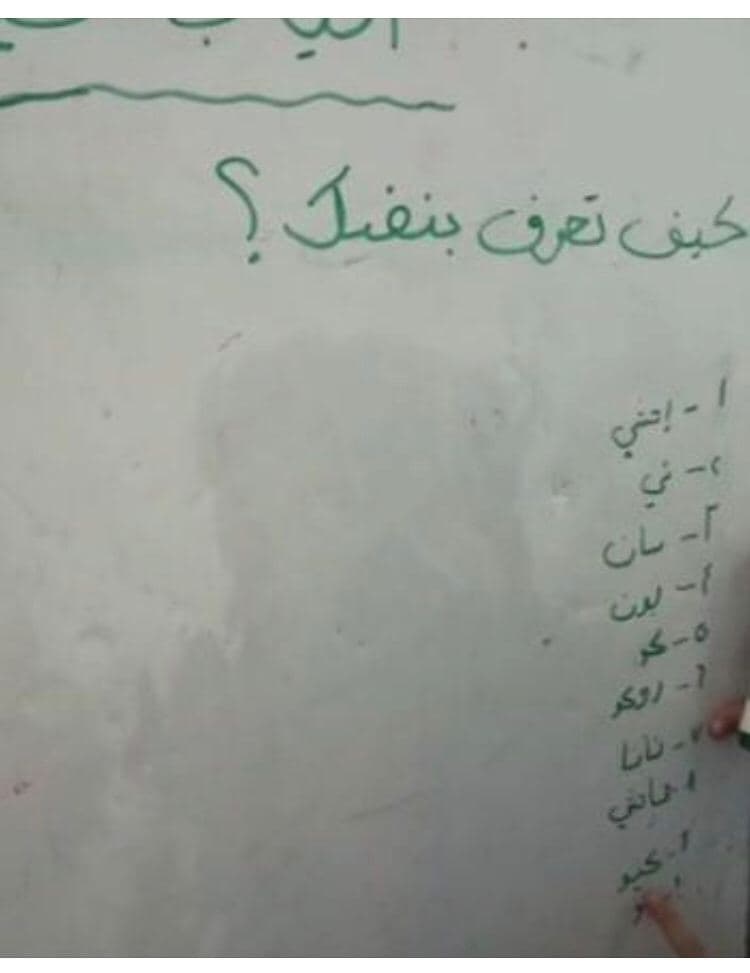 كيف تعرف بنفسك ؟
١ - إتني
٢ - ني
٣ - سان
٤ - يون
٥ - كو
٦ - روكو
٧ - نانا
٨ - هاتني
٩ - كيو